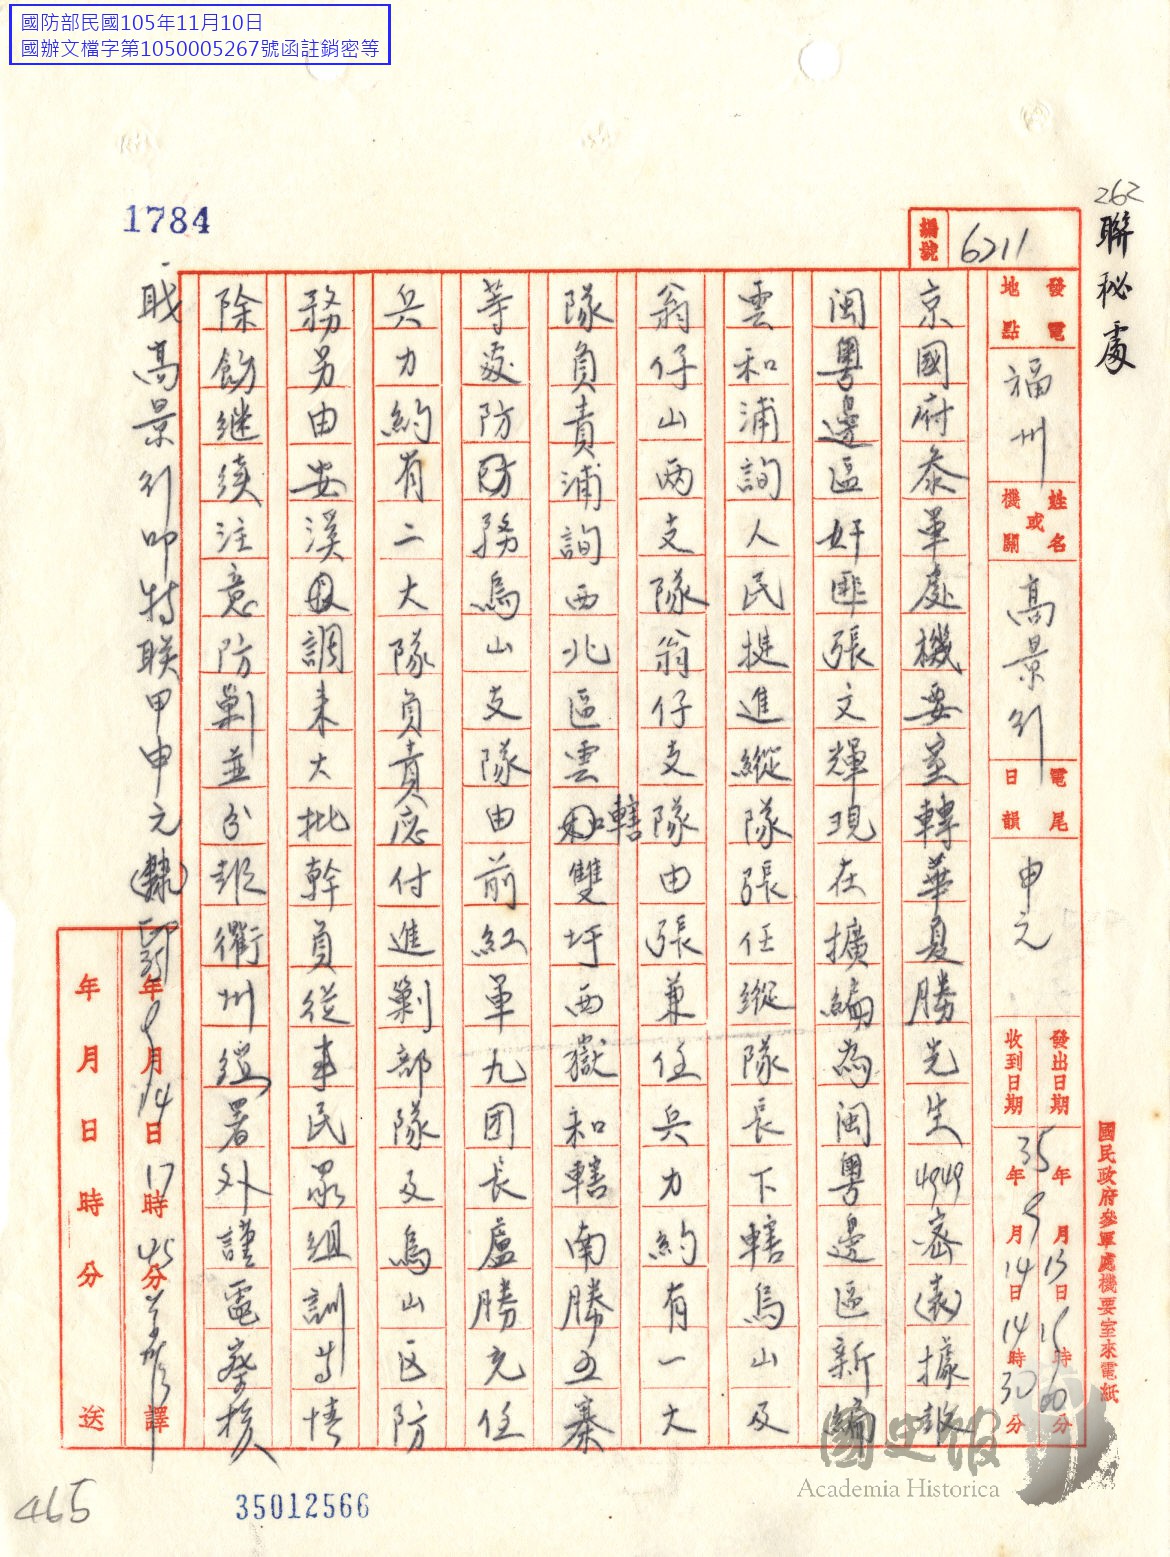 國防部民國105年11月10日
國辦文檔字第1050005267號函註銷密等
262
聯秘處
1784
編號 6211
發電地點 福州
姓名或機關 高景行
電尾日韻 申元
發出日期 35年9月13日15時00分
收到日期 年9月14日14時30分
國民政府參軍處機要室來電紙
京國府參軍處機要室轉華夏勝先生4949密(表)據報
閩粵邊區奸匪張文輝現在擴編為閩粵邊區新編
雲和浦詢人民挺進縱隊張任縱隊長下轄烏山及
翁仔山兩支隊翁仔支隊由張兼任兵力約有一大
隊負責浦詢西北區雲和轄雙圩西嶽和轄南勝五寨
等處防務烏山支隊由前紅軍九团長盧勝充任
兵力約有二大隊負責应付進剿部隊及烏山区防
務另由安溪調来大批幹員從事民眾組訓等情
除飭继續注意防剿並分報衢州綏署外謹電鑒核
職高景行叩特联甲申元(隸)印
年9月14日17時45分 譯
年月日時分 送
465
35012566
國史館
Academia Historica